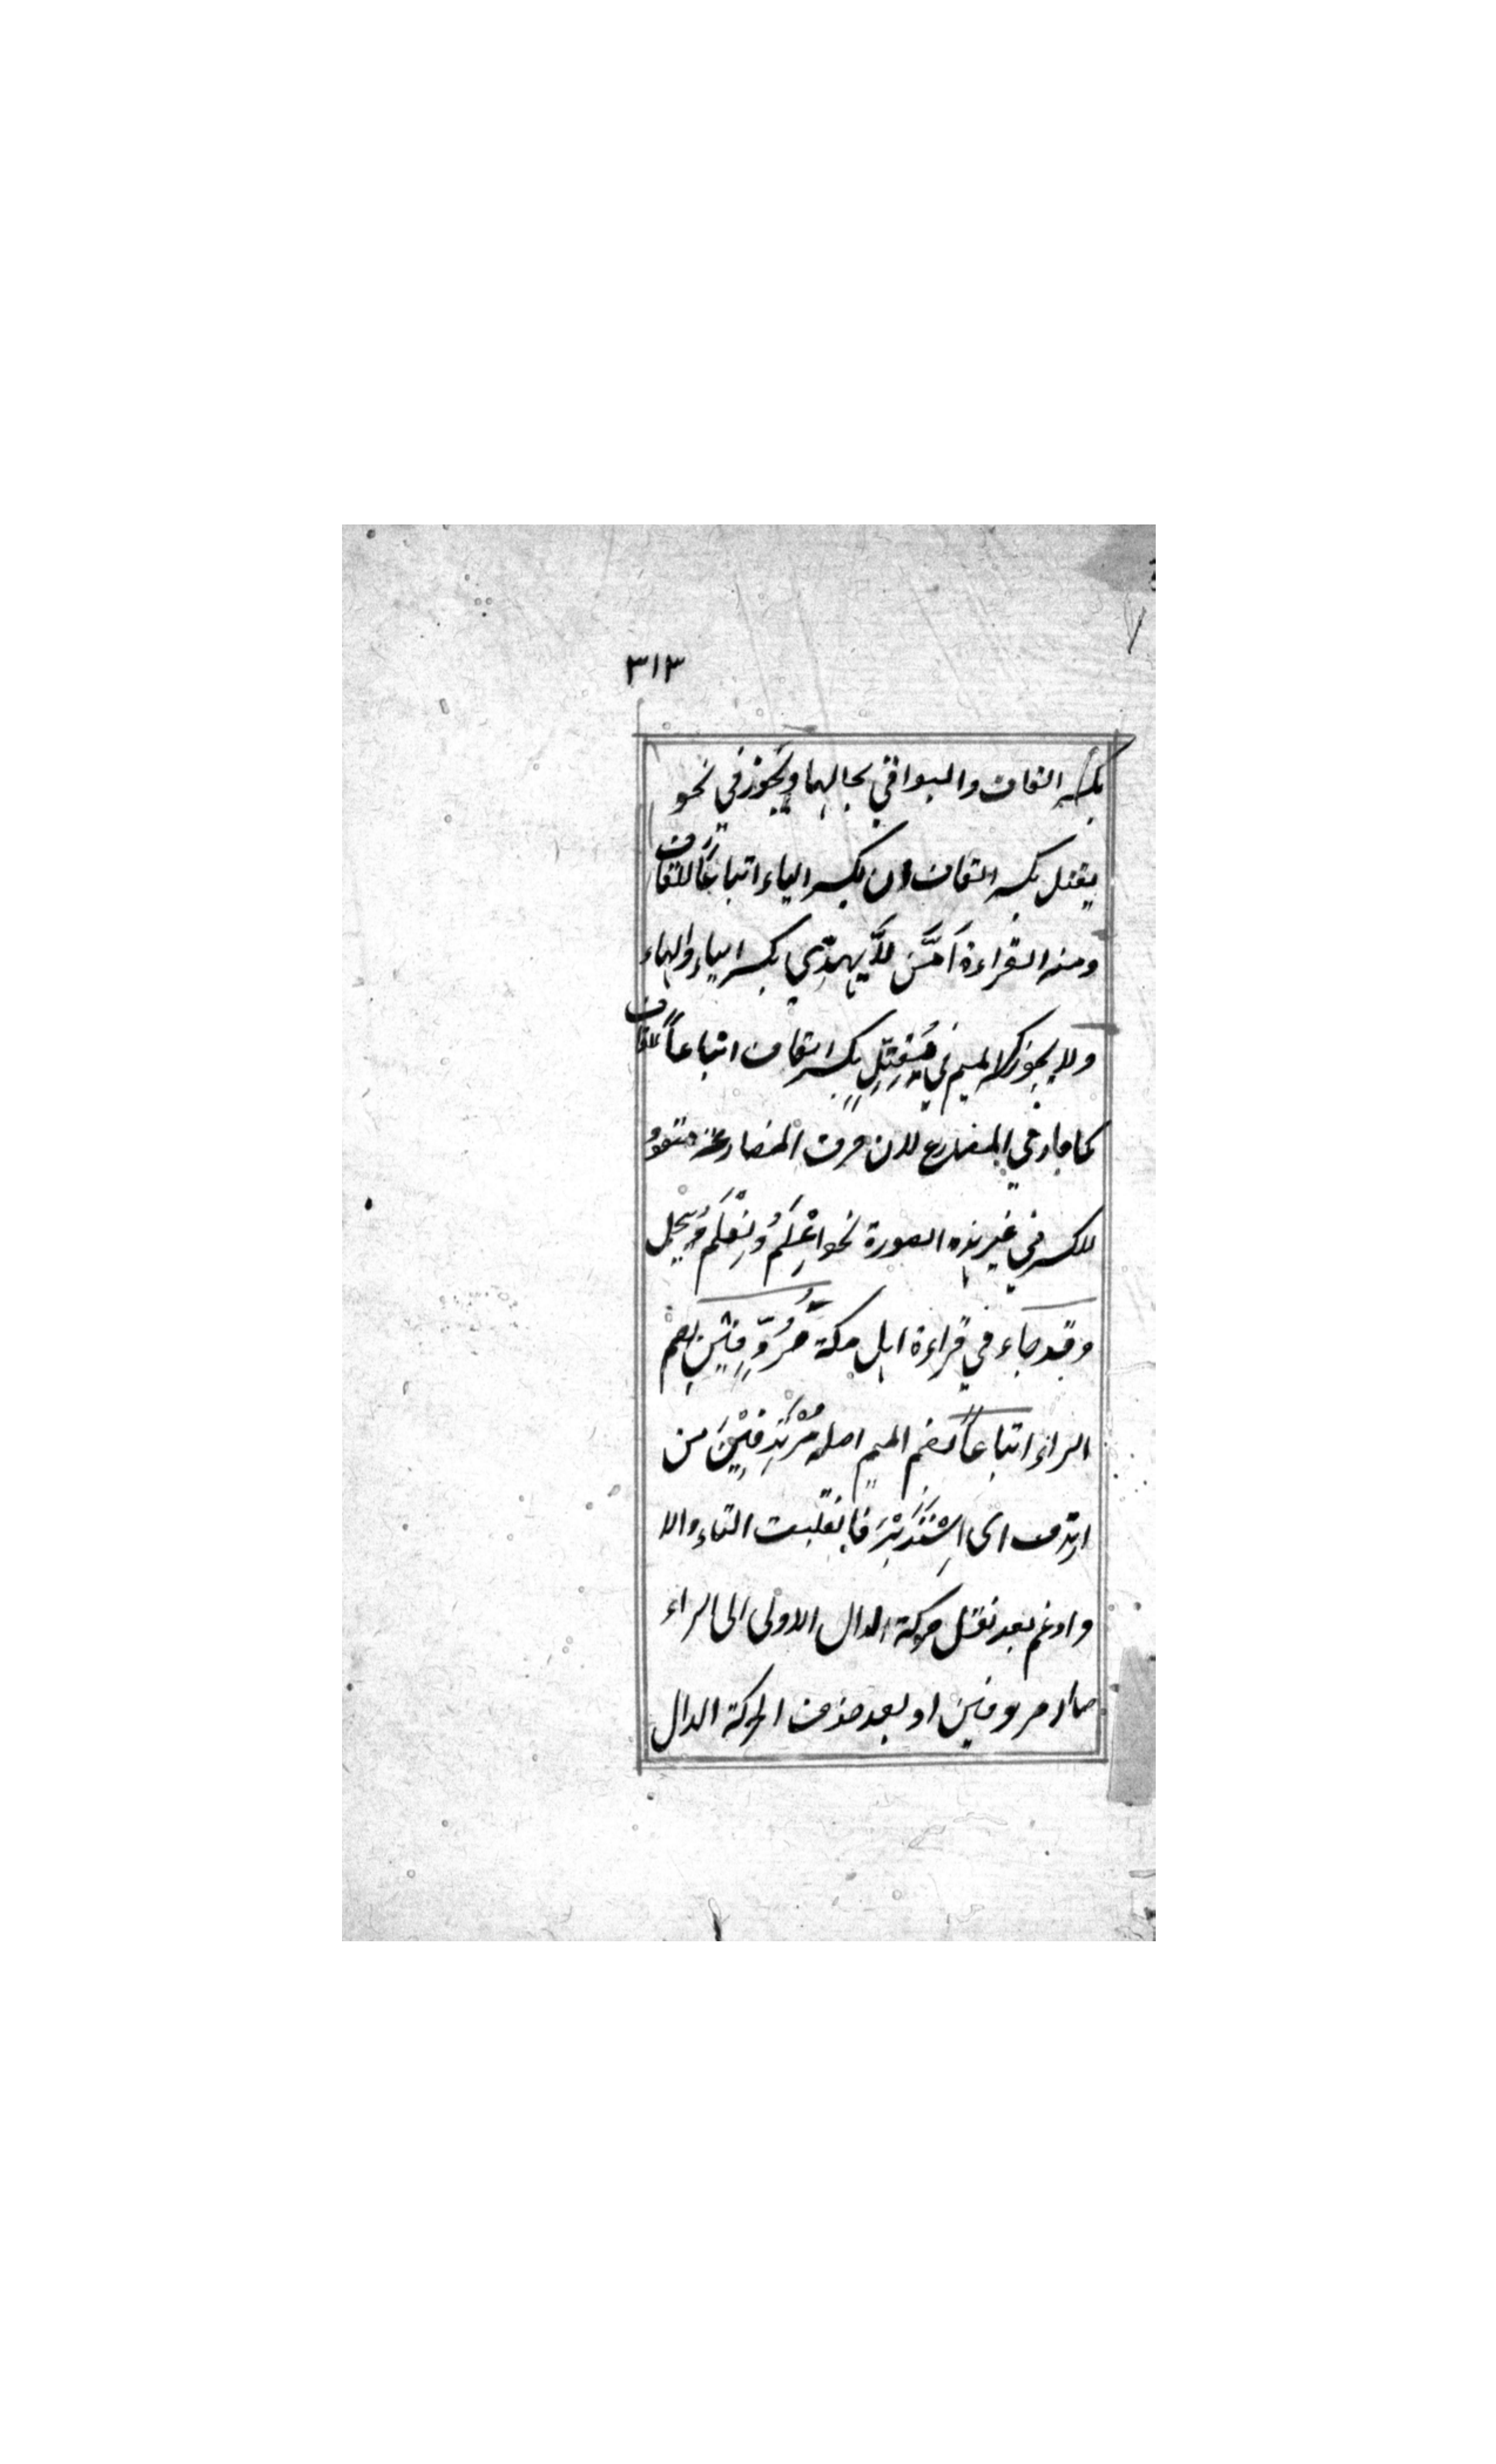 ٣١٣
بكسر القاف والبواقي بحالهما ويجوز في نحو
يقتل بكسر القاف ان يكسر الياء اتباعاً للقاف
ومنه القراءة اَمَّنَ لاَّ يِهِدِّي بكسر الياء والهاء
ولا يجوز كسر الميم في مُقِتِّلٍ بكسر القاف اتباعاً للقاف
كما جاز في المضارع لان حرف المضارعة متعود
للكسر في غير هذه الصورة نحو اِعْلَمُ وَنِعْلَمُ وَيِيجل
وقد جاء في قراءة اهل مكة مُرُدِّفِيْنَ بضم
الراء اتباعاً لضم الميم اصله مُرْتَدِفِيْنَ من
ارتدف اى اِسْتَدْبَرَ فانقلبت التاء دالا
وادغم بعد نقل حركة الدال الاولى الى الراء
صار مردفين او بعد حذف الحركة الدال